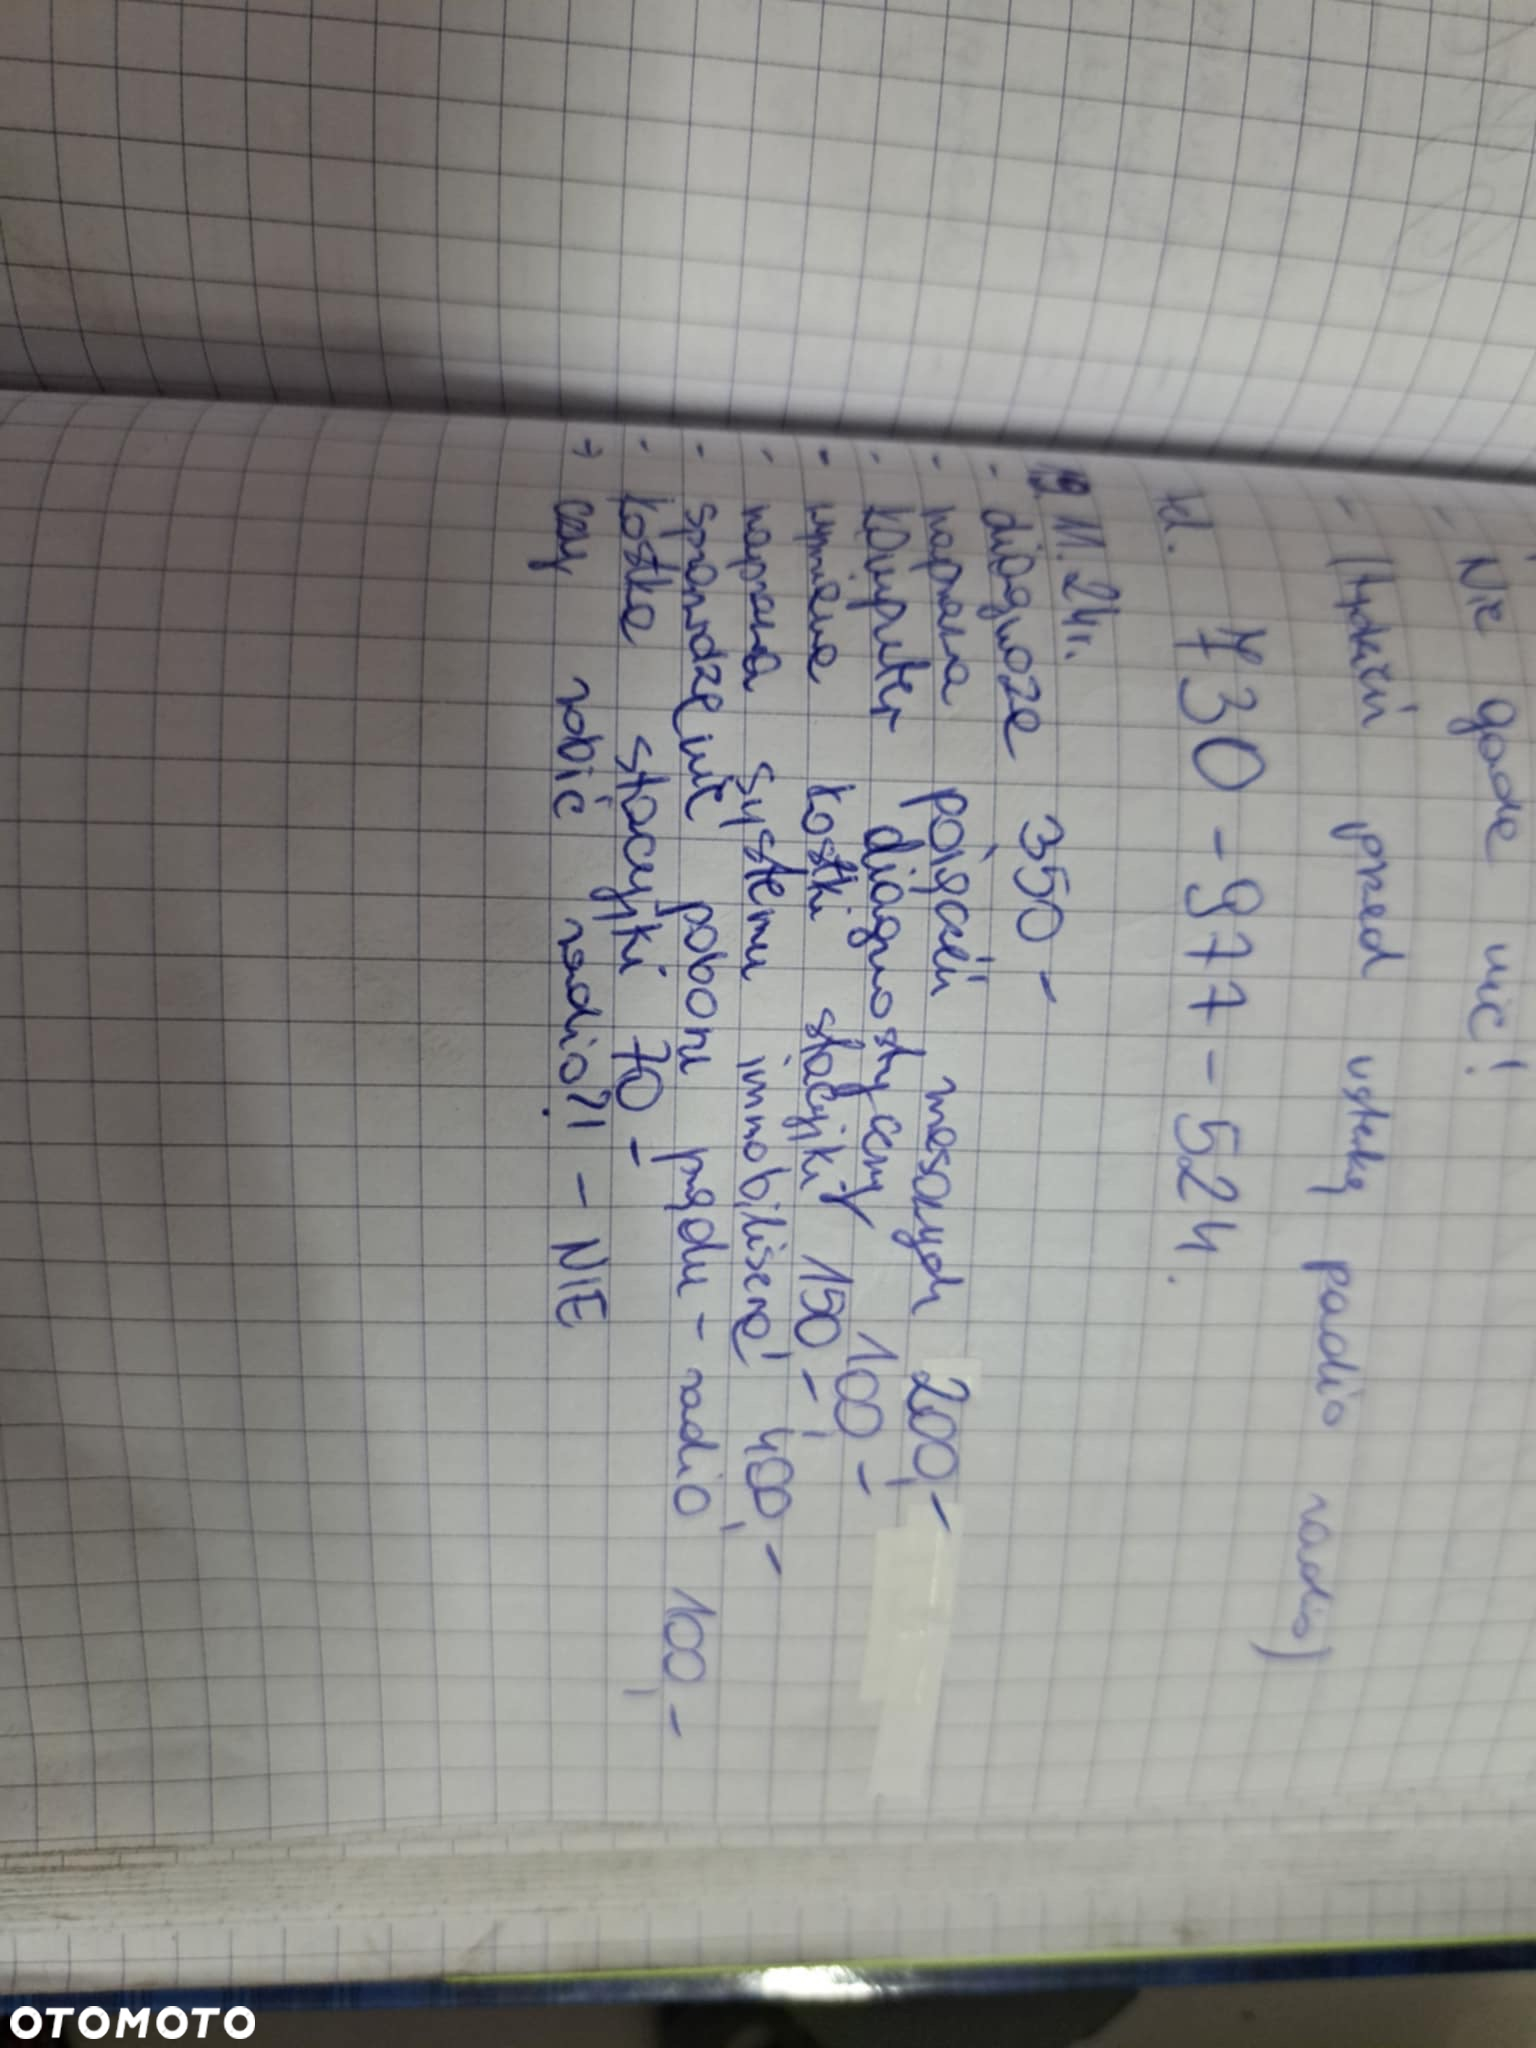 - Nie gada nic!
- (tydzień przed usterką padło radio)
tel. 730-977-524.
19.11.24r.
- diagnoza 350-
- naprawa połączeń masowych 200,-
- komputer diagnostyczny 100,-
- wymiana kostki stacyjki 150,-
- naprawa systemu immobilisera 400,-
- sprawdzenie poboru prądu - radio 100,-
- kostka stacyjki 70-
→ czy robić radio?! - NIE
OTOMOTO